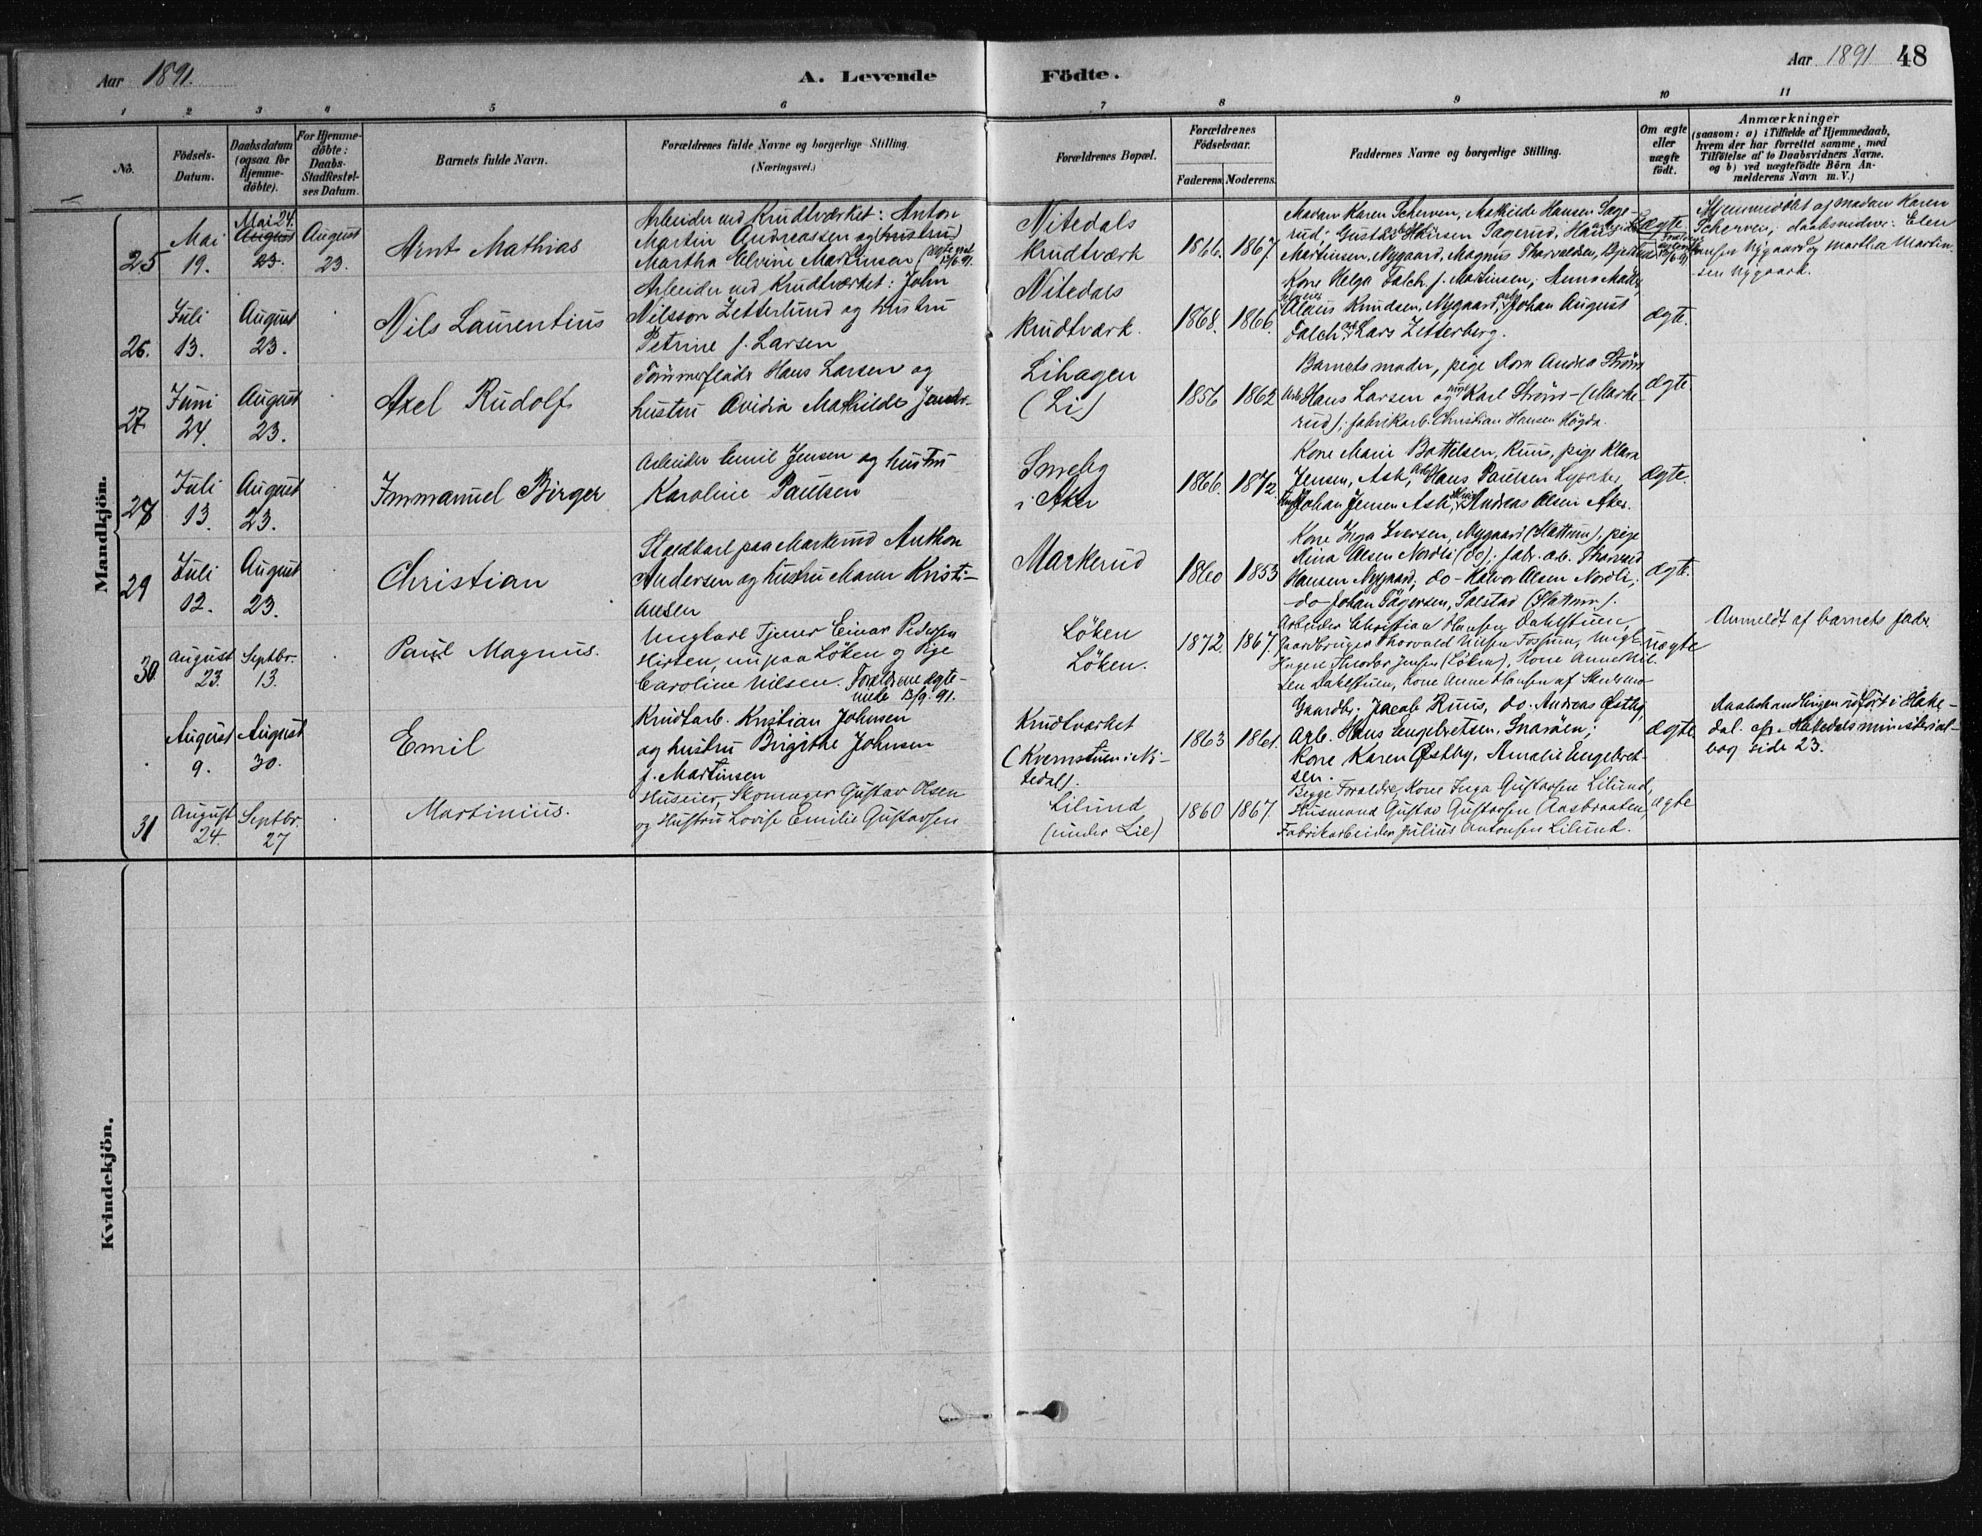 Aar 1891.
A. Levende
Födte.
Aar 1891
48
1 2 3 4 5 6 7 8 9 10 11
No.
Födsels-
Datum.
Daabsdatum
(ogsaa for
Hjemme-
döbte).
For Hjemme-
döbte:
Daabs-
Stadfestel-
ses Datum.
Barnets fulde Navn.
Forældrenes fulde Navne og borgerlige Stilling.
(Næringsvei.)
Forældrenes Bopæl.
Forældrenes
Födselsaar.
Faderens. Moderens.
Faddernes Navne og borgerlige Stilling.
Om ægte
eller
uægte
födt.
Anmærkninger
(saasom: a) i Tilfælde af Hjemmedaab,
hvem der har forrettet samme, med
Tilföielse af to Daabsvidners Navne.
og b) ved uægtefödte Börn An-
melderens Navn m. V.)
Mandkjön.
25
Mai
19.
Mai 24.
August
23.
August
23.
Arnt Mathias
Arbeider ved Krudtværket: Anton
Martin Andreassen og (hustru)
Martha Elvine Martinsen
Nitedals
Krudtværk
1866. 1867.
Madam Karen Scherven, Mathilde Hansen Sage-
rud, Gustav Hansen Sagerud, Hans
Martinsen, Nygaard, Magnus Thorvaldsen
Uægte
Hjemmedöbt af madam Karen
Scherven; daabsvidner: Elen
Hansen Nygaard og Martha Martin-
sen Nygaard.
26.
Juli
13.
August
23.
Nils Laurentius
Arbeider ved Krudtværket: John
Nilsson Zetterlund og hustru
Petrine f. Larsen
Nitedals
Krudtværk.
1868. 1866.
Kone Helga Falch f. Martinsen, Anna Mathe
Olaus Knudsen, Nygaard, Johan August
Falch, Lars Zetterberg.
ægte.
27
Juni
24.
August
23.
Axel Rudolf
Tømmerfløder Hans Larsen og
hustru Avidia Mathilde
Lihagen
(Li)
1856 1862
Barnets moder, pige Andrea Strøm
Hans Larsen og Karl Strøm - (Marke-
rud); fabrikarb. Christian Hansen Høgda.
ægte.
28
Juli
13.
August
23.
Immanuel Birger
Arbeider Emil Jensen og hustru
Karoline Paulsen
Smeby
i Aker
1866. 1872.
Kone Marie Bottelsen, Ruus, pige Klara
Jensen, Ask, Hans Paulsen Lysaker,
Johan Jensen Ask, Andreas Olsen Aker.
ægte.
29
Juli
12.
August
23.
Christian
Staldkarl paa Markerud Anthon
Andersen og hustru Maren Kristi-
ansen
Markerud
1860 1853
Kone Inga Iversen, Nygaard (Hattrem); pige
Mina Olsen Nordli (do); fabr. arb.
Hansen Nygaard, do- Halvor Olsen Nordli;
-do- Johan Fagersen, Solstad (Hattrem).
ægte.
30
August
23.
Septbr.
13.
Paul Magnus.
Ungkarl Tjener Einar Pedersen
Hirsten, nu paa Løken og Pige
Caroline Nilsen. Forældrene ægte-
viede 13/9.91.
Løken
Løken.
1872. 1867.
Arbeider Christian Hansen Dahlstuen,
Gaardbruger Thorvald Nilsen Fossum, Ungk.
Theodor Jensen (Løken), Kone Anne
sen Dahlstuen, Kone Anne Hansen af Skedsmo
uægte
Anmeldt af barnets fader
August
9.
August
30.
Emil
Krudtarb. Kristian Johnsen
og hustru Birgithe Johnsen
f. Martinsen
Krudtværket
(Kvernstuen i Ni-
tedal).
1863 1861.
Gaardbr. Jacob Ruus, do. Andreas Østby,
Arb. Hans Engebretsen, Snarøen;
Kone Karen Østby, Amalie Engebret-
sen.
ægte
Daabshandlingen udført i Hake-
dal. cfr. Hakedals ministerial-
bog side 23.
31
August
24.
Septbr.
27
Martinius.
Huseier, Skomager Gustav Olsen
og Hustru Lovise Emilie Gustavsen
Lilund
(under Lie)
1860 1867.
Begge Forældre, Kone Inga Gustavsen Lilund,
Husmand Gustav Gustavsen Aasbraaten,
Fabrikarbeider Julius Antonsen Lilund.
ægte
Kvindekjön.